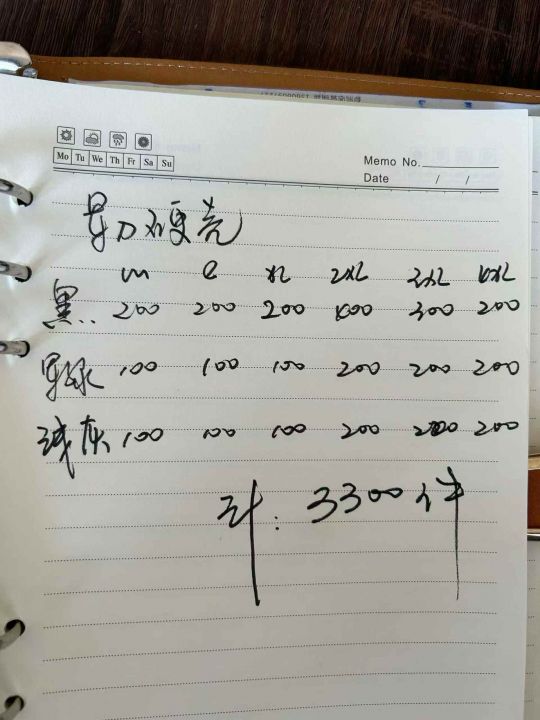 Mo Tu We Th Fr Sa Su
Memo No.
Date / /
硬壳
m l XL 2XL 3XL 4XL
黑.. 200 200 200 400 300 200
军绿 100 100 100 200 200 200
浅灰 100 100 100 200 200 200
计: 3300件